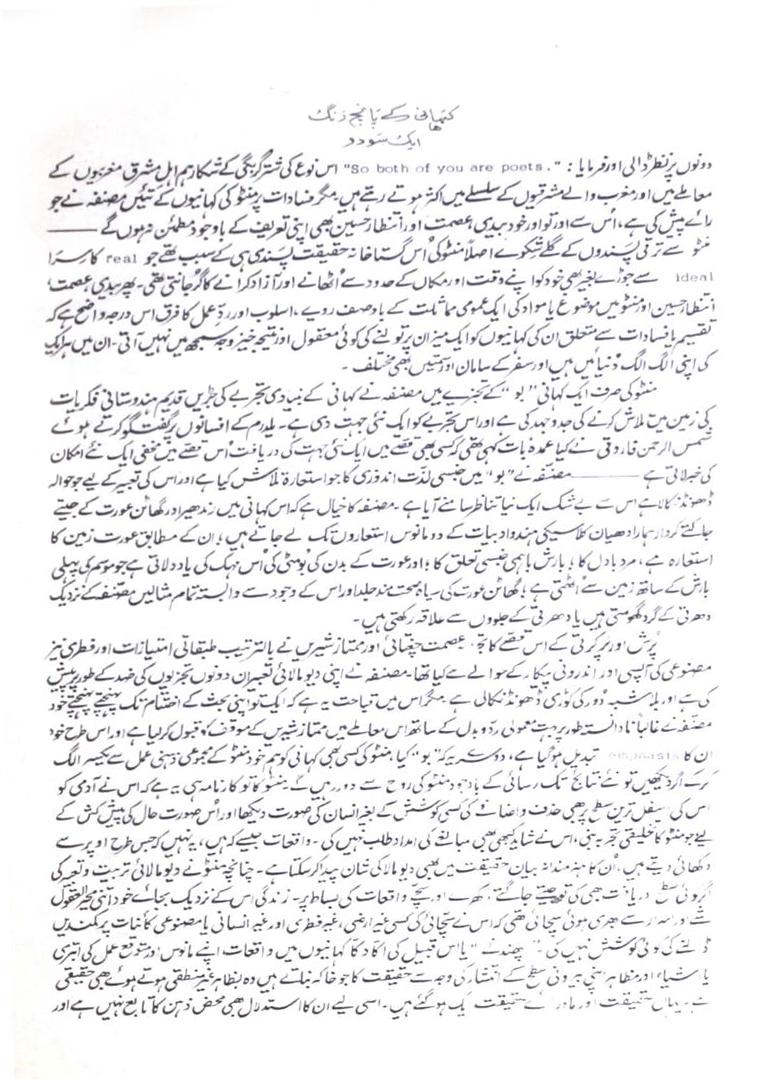 کہانی کے پانچ رنگ
ایک سو دو
دونوں پر نظر ڈالی اور فرمایا: "So both of you are poets." اس نوع کی شتر گربگی کے شکار ہم اہلِ مشرق مغربیوں کے
معاملے میں اور مغرب والے مشرقیوں کے سلسلے میں اکثر ہوتے رہتے ہیں مگر فسادات پر منٹو کی کہانیوں کے تئیں مصنفہ نے جو
رائے پیش کی ہے، اُس سے اور تو اور خود بیدی، عصمت اور انتظار حسین بھی اپنی تعریف کے باوجود مطمئن نہ ہوں گے ——
منٹو سے ترقی پسندوں کے گلے شکوے اصلاً منٹو کی اُس گستاخانہ حقیقت پسندی ہی کے سبب تھے جو real کا سِرا
ideal سے جوڑے بغیر بھی خود کو اپنے وقت اور مکاں کے حدود سے اُٹھانے اور آزاد کرانے کا گُر جانتی تھی۔ پھر بیدی، عصمت،
انتظار حسین اور منٹو میں موضوع یا مواد کی ایک عمومی مماثلت کے باوصف رویے، اسلوب اور ردِّ عمل کا فرق اس درجہ واضح ہے کہ
تقسیم یا فسادات سے متعلق ان کی کہانیوں کو ایک میزان پر تولنے کی کوئی معقول اور نتیجہ خیز وجہ سمجھ میں نہیں آتی۔ ان میں ہر ایک
کی اپنی الگ الگ دُنیائیں ہیں اور سفر کے سامان اور سمتیں بھی مختلف۔
منٹو کی صرف ایک کہانی "بو" کے تجزیے میں مصنفہ نے کہانی کے بنیادی تجربے کی جڑیں قدیم ہندوستانی فکریات
کی زمین میں تلاش کرنے کی جدوجہد کی ہے اور اس تجربے کو ایک نئی جہت دی ہے۔ یلدرم کے افسانوں پر گفتگو کرتے ہوئے
شمس الرحمٰن فاروقی نے کیا عمدہ بات کہی تھی کہ کسی بھی قصے میں ایک نئی جہت کی دریافت اُس قصے میں مخفی ایک نئے امکان
کی خبر لاتی ہے —— مصنفہ نے "بو" میں جنسی لذّت اندوزی کا جو استعارہ تلاش کیا ہے اور اس کی تعبیر کے لیے جو حوالہ
ڈھونڈ نکالا ہے اس سے بے شک ایک نیا تناظر سامنے آیا ہے۔ مصنفہ کا خیال ہے کہ اس کہانی میں رندھیر اور گھاٹن عورت کے جیتے
جاگتے کردار ہمارا دھیان کلاسیکی ہندو ادبیات کے دو مانوس استعاروں تک لے جاتے ہیں؛ ان کے مطابق عورت زمین کا
استعارہ ہے، مرد بادل کا؛ بارش باہمی جنسی تعلق کا؛ اور عورت کے بدن کی بُو مٹی کی اُس مہک کی یاد دلاتی ہے جو موسم کی پہلی
بارش کے ساتھ زمین سے اُٹھتی ہے؛ گھاٹن عورت کی سیاہ صحت مند جلد اور اس کے وجود سے وابستہ تمام مثالیں مصنفہ کے نزدیک
دھرتی کے گرد گھومتی ہیں یا دھرتی کے جلووں سے علاقہ رکھتی ہیں۔
پُرش اور پرکرتی کے اس قصے کا تجزیہ عصمت چغتائی اور ممتاز شیریں نے بالترتیب طبقاتی امتیازات اور فطری نیز
مصنوعی کی آپسی اور اندرونی پیکار کے حوالے سے کیا تھا۔ مصنفہ نے اپنی دیومالائی تعبیر ان دونوں تجزیوں کی ضد کے طور پر پیش
کی ہے اور بلاشبہ دُور کی کوڑی ڈھونڈ نکالی ہے مگر اس میں قباحت یہ ہے کہ ایک تو اپنی بحث کے اختتام تک پہنچتے پہنچتے خود
مصنفہ نے غالباً نادانستہ طور پر بہت معمولی ردّ و بدل کے ساتھ اس معاملے میں ممتاز شیریں کے موقف کو قبول کر لیا ہے اور اس طرح خود
ان کا emphasis تبدیل ہو گیا ہے، دوسرے یہ کہ "بو" کیا، منٹو کی کسی بھی کہانی کو ہم خود منٹو کے مجموعی ذہنی عمل سے یکسر الگ
کر کے اگر دیکھیں تو نئے نتائج تک رسائی کے باوجود منٹو کی روح سے دور رہیں گے منٹو کا تو کارنامہ ہی یہ ہے کہ اس نے آدمی کو
اس کی اسفل ترین سطح پر بھی حذف و اضافے کی کسی کوشش کے بغیر انسان کی صورت دیکھا اور اُس صورت حال کی پیش کش کے
لیے جو منٹو کا تخلیقی تجربہ بنی، اس نے شاید کبھی بھی مبالغے کی امداد طلب نہیں کی۔ واقعات جیسے کہ ہیں، یہ نہیں کہ جس طرح اوپر سے
دکھائی دیتے ہیں، اُن کا ہنرمندانہ بیان حقیقت میں بھی دیومالا کی شان پیدا کر سکتا ہے۔ چنانچہ منٹو نے دیومالائی تربیت و تعبیر کی
گروئی سطح دریافت بھی کی تو جیتے جاگتے، کھرے اور سچّے واقعات کی بساط پر۔ زندگی اس کے نزدیک بجائے خود اتنی محیر العقول
شے اور اسرار سے بھری ہوئی سچائی تھی کہ اس نے سچائی کی کسی غیر ارضی، غیر فطری اور غیر انسانی یا مصنوعی کائنات پر کمندیں
ڈالنے کی کوئی کوشش نہیں کی۔ "پھندنے" یا اس قبیل کی اکا دکا کہانیوں میں واقعات اپنے مانوس اور متوقع عمل کی ابتری
یا اشیاء اور مظاہر اپنی بیرونی سطح کے انتشار کی وجہ سے حقیقت کا جو خاکہ بناتے ہیں وہ بظاہر غیر منطقی ہوتے ہوئے بھی حقیقی
ہے۔ یہاں حقیقت اور ماورائے حقیقت ایک ہو گئے ہیں۔ اسی لیے ان کا استدلال بھی محض ذہن کا تابع نہیں ہے اور